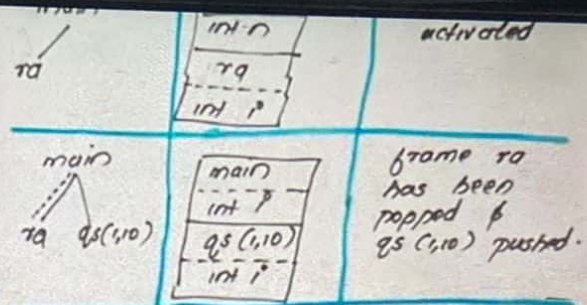 main
ra
int n
ra
int i
activated
main
ra qs(1,10)
main
int p
qs (1,10)
int i
frame ra
has been
popped &
qs (1,10) pushed.